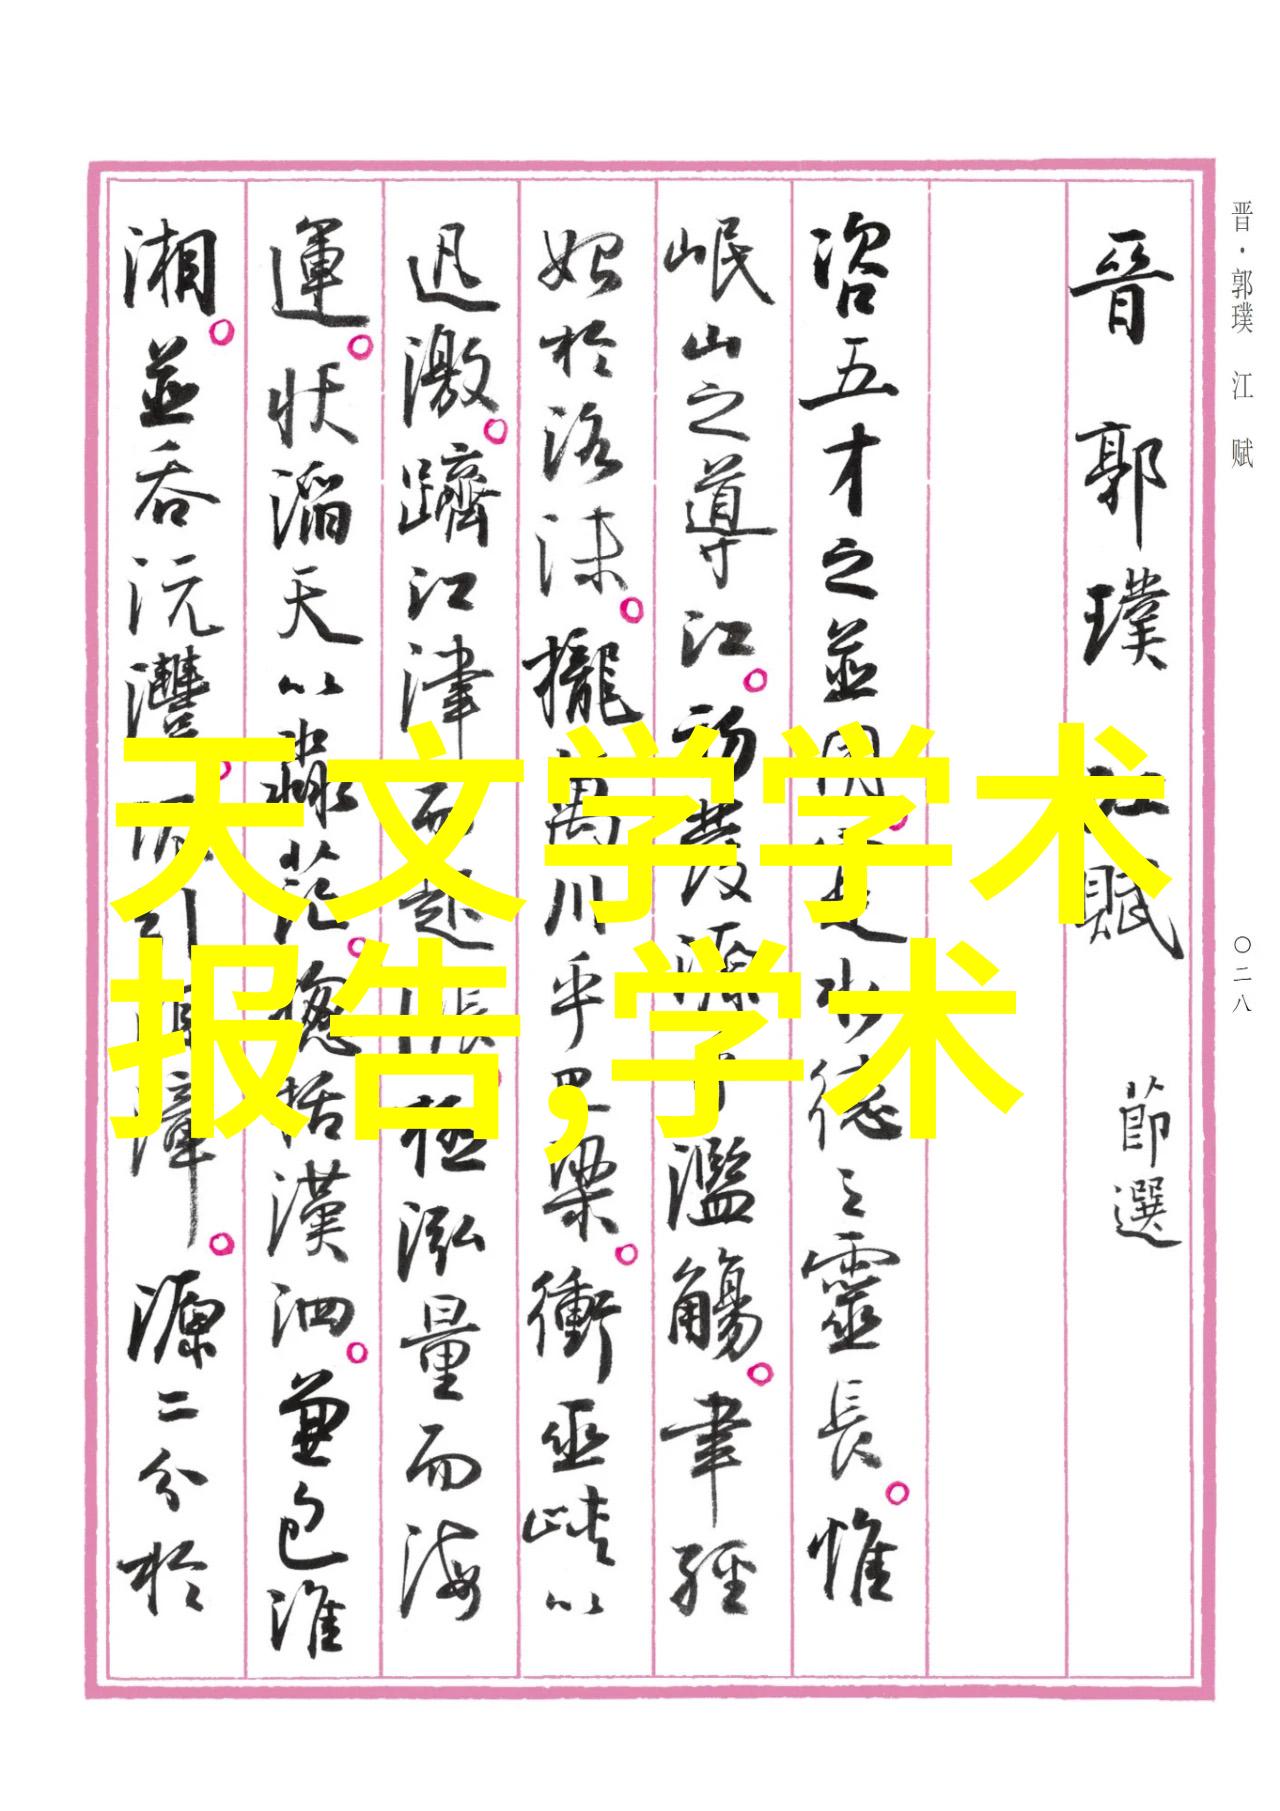 晋·郭璞 江 赋
〇二八
晉 郭璞 江賦 節選
咨五才之並用 寔水德之靈長 惟
岷山之導江 初發源乎濫觴 聿經
始於洛沬 攏萬川乎巴梁 衝巫峽以
迅激 躋江津而起漲 極泓量而海
運 狀滔天以淼茫 摠括漢泗 兼包淮
湘 並吞沅澧 汲引沮漳 源二分於
天文学学术
报告,学术